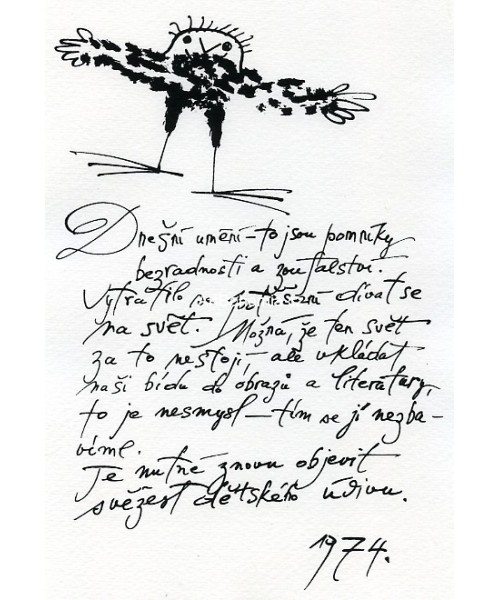 Dnešní umění – to jsou pomníky
bezradnosti a zoufalství.
Vytratilo se dívat se
na svět. Možná, že ten svět
za to nestojí, ale vkládat
naši bídu do obrazů a literatury,
to je nesmysl – tím se jí nezba–
víme.
Je nutné znovu objevit
svěžest dětského údivu.
1974.